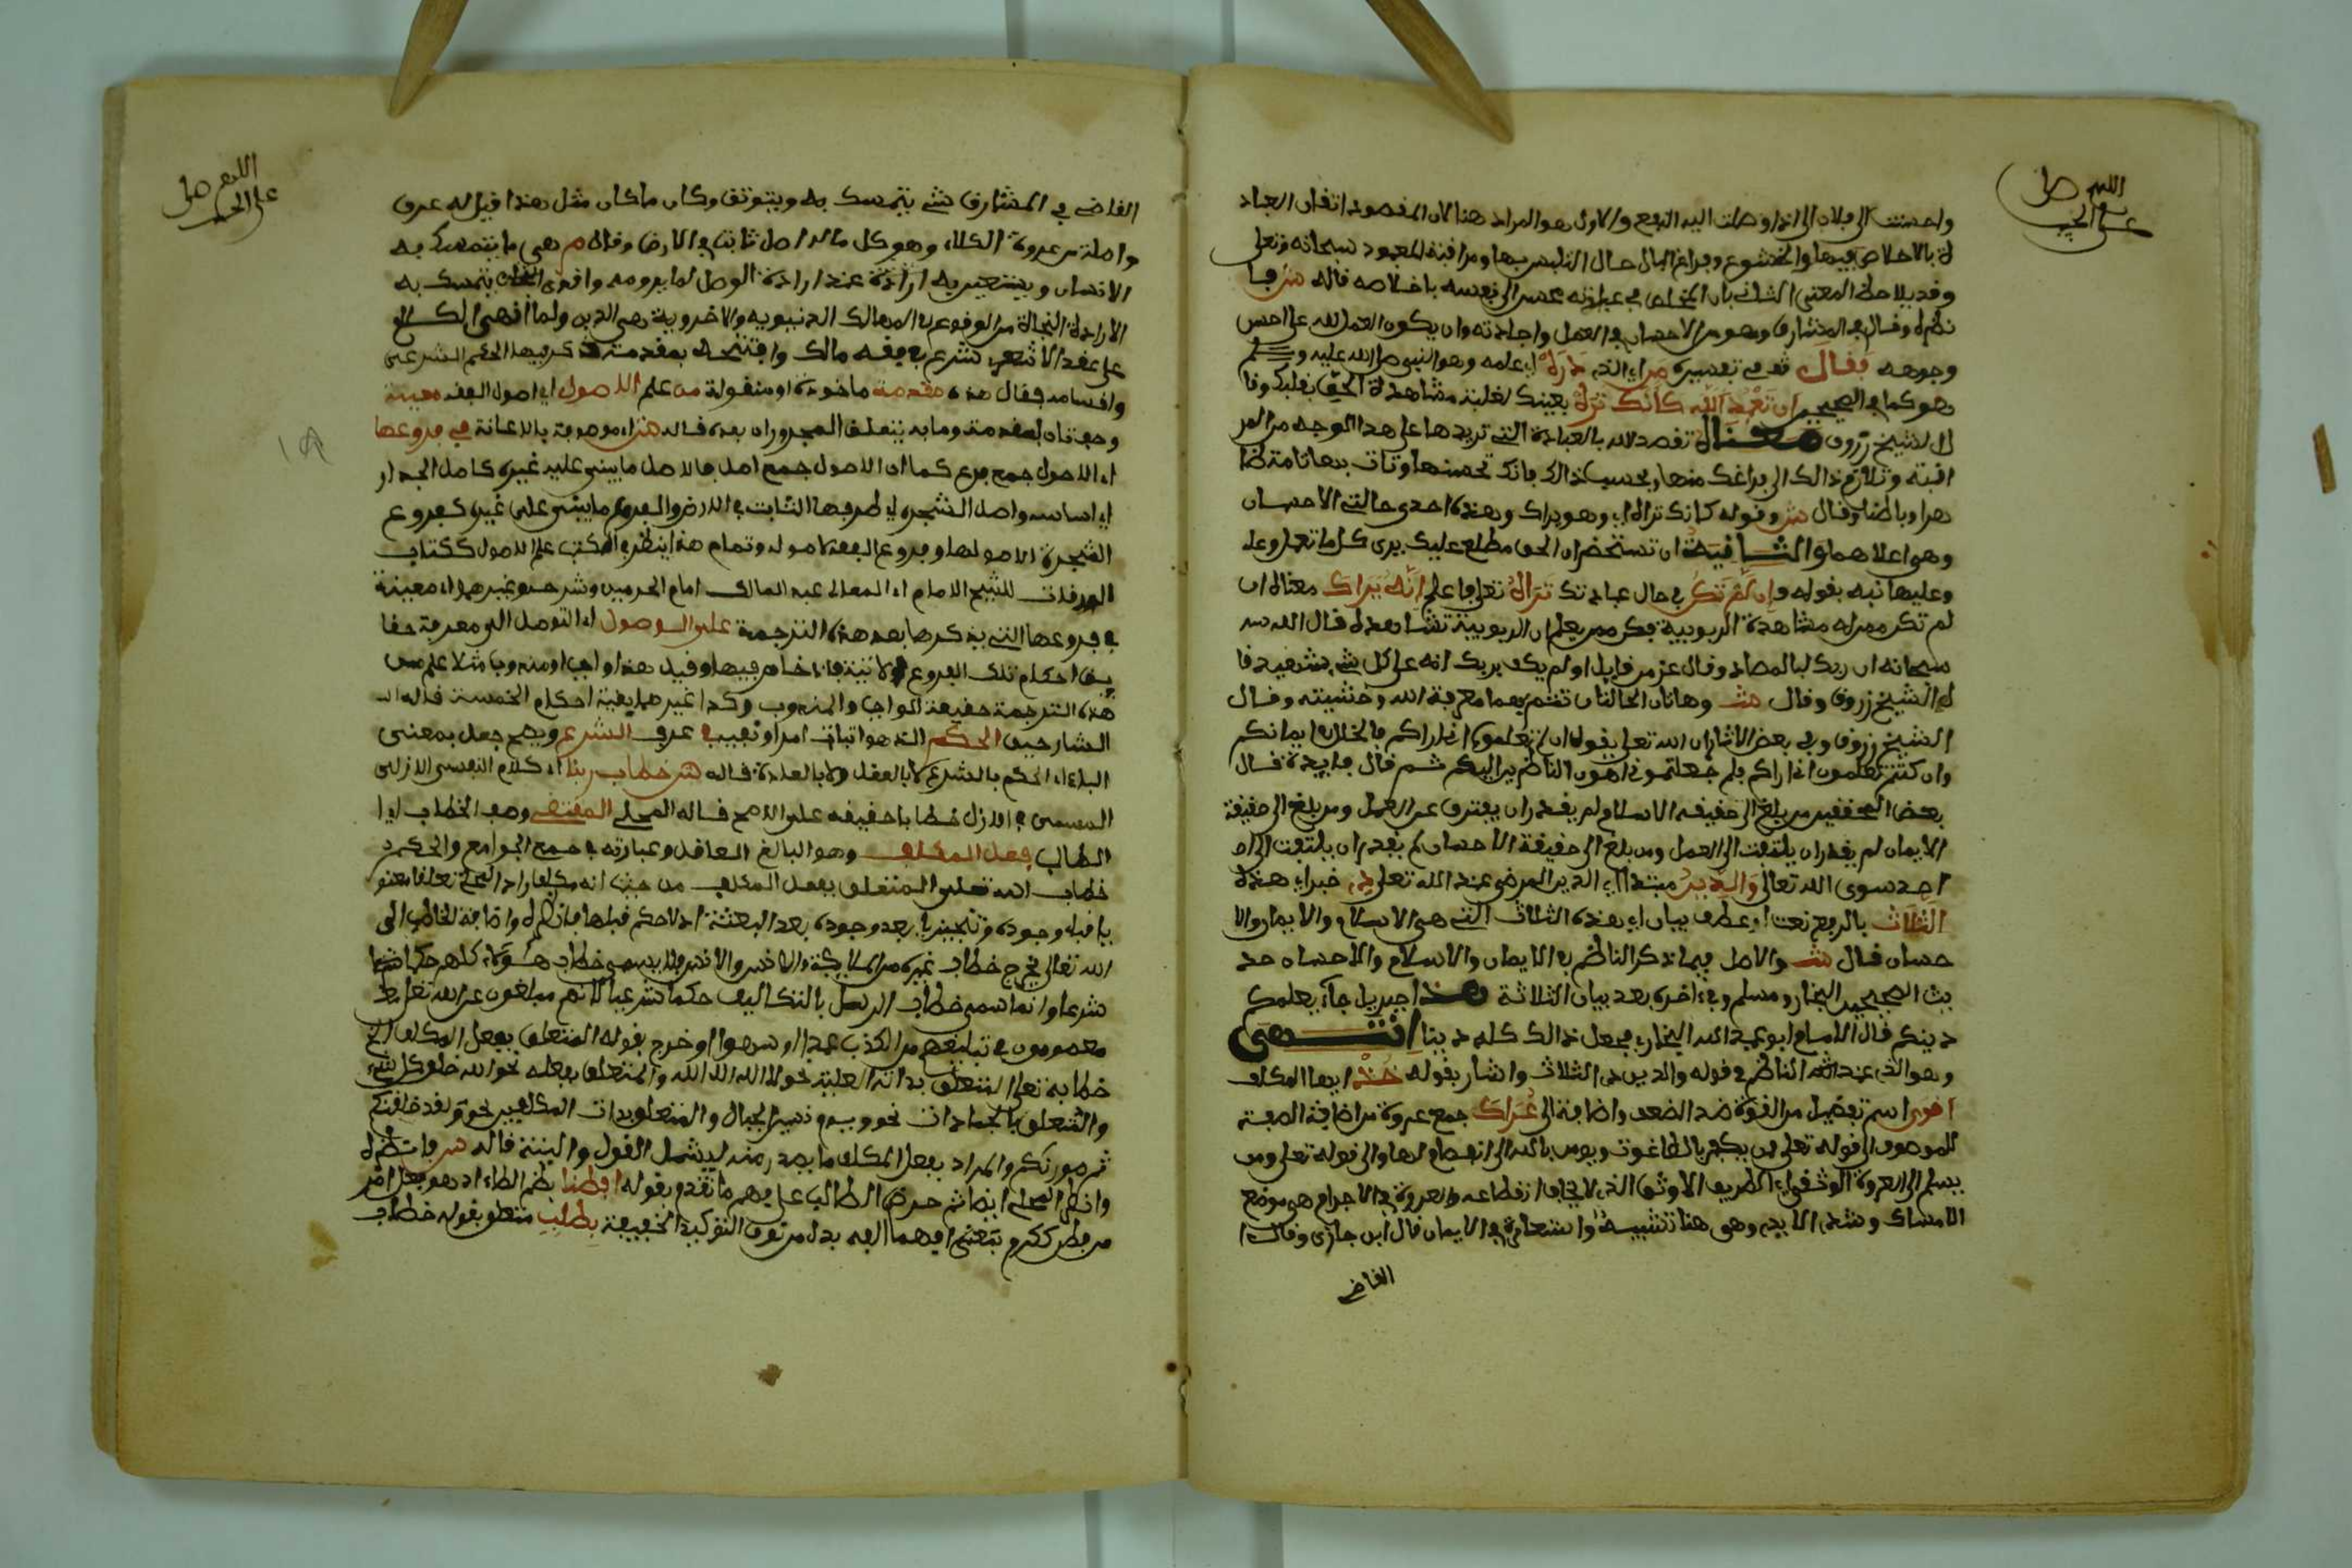 اللهم صل
على الحبيب
واحسنت الى فلان اى اذا وصلت اليه النفع والاول هو المراد هنا لان المقصود اتقان العباد
ة بالاخلاص فيها والخشوع وفراغ البال حال التلبس بها ومراقبة المعبود سبحانه وتعلى
وقد يلاحظ المعنى الثانى بان المخلص فى عبادته محسن الى نفسه باخلاصه قاله ش فا
نظره وقال فى المشارق وهو من الاحسان فى العمل واجادته وان يكون العمل لله على احسن
وجوهه فقال فى تفسيره من اى الذى دراه اى علمه وهو النبى صلى الله عليه وسلم
هو كما فى الصحيح ان تعبد الله كانك تراه بعينك لغلبة مشاهدة الحق بقلبك وقا
ل الشيخ زروق معناه تقصد لله بالعبادة التى تريدها على هذا الوجه من المر
اقبة وتلازم ذالك الى فراغك منها وبحسب ذالك فانك تحسنها وتات بها تامة ظا
هرا وباطنا وقال ش وقوله كانك تراه اى وهو يراك وهذه احدى حالتى الاحسان
وهى اعلاهما والثانية ان تستحضر ان الحق مطلع عليك يرى كل ما تعمل وعلـ
وعليها نبه بقوله وان لم تكن فى حال عبادتك تراه تعلى فاعلم انه يراك معناه ان
لم تكن ممن له مشاهدة الربوبية فكن ممن يعلم ان الربوبية تشاهده قال الله
سبحانه ان ربك لبالمرصاد وقال عز من قايل او لم يكف بربك انه على كل شىء شهيد قا
له الشيخ زروق وقال ش وهاتان الحالتان تثمرهما معرفة الله وخشيته وقال
الشيخ زروق وفى بعض الاثار ان الله تعلى يقول ان لم تعلموا انى اراكم فالخلل فى ايمانكم
وان كنتم تعلمون انى اراكم فلم جعلتمونى اهون الناظرين اليكم ثم قال فايدة قال
بعض المحققين من بلغ الى حقيقة الاسلام لم يقدر ان يفتر عن العمل ومن بلغ الى حقيقة
الايمان لم يقدر ان يلتفت الى العمل ومن بلغ الى حقيقة الاحسان لم يقدر ان يلتفت الى ا
حد سوى الله تعالى والدين مبتدا اى الدين المرضى عند الله تعلى ذى خبر اى هذه
الثلاث بالرفع نعت او عطف بيان اى هذه الثلاث التى هى الاسلام والايمان والا
حسان قال ش والاصل فيما ذكر الناظم فى الايمان والاسلام والاحسان حد
يث الصحيحين البخارى ومسلم وفى اخره بعد بيان الثلاثة هذا جبريل جاء يعلمكم
دينكم قال الامام ابو عبد الله البخارى فجعل ذالك كله دينا انتهى
وهو الذى عند الناظم فى قوله والدين ذى الثلاث واشار بقوله خذ ايها المكلف
اقوى اسم تفضيل من القوة ضد الضعف واضافة الى عراك جمع عروة من اضافة الصفة
للموصوف الى قوله تعلى فمن يكفر بالطاغوت ويومن بالله الى انفصام لها والى قوله تعلى ومن
يسلم الى العروة الوثقى اى الطريف الاوثق الذى لا يخاف انقطاعه والعروة فى الاجرام هى موضع
الامساك وشد الايدى وهى هنا تشبيه واستعارة فى الايمان قال ابن جزى وقال ا
القاضى
اللهم صل
على الحبيب
القاضى فى المشارق شىء يتمسك به ويتوثق وكان ماكان مثل هذا قيل له عرق
واصله من عروة الكلاء وهو كل ماله اصل ثابت فى الارض وقال م هى ما يتمسك به
الانسان ويستعين به ارادة عند ارادة الوصل لما يرومه واقوى يتمسك به
الارادة النجاة من الوقوع فى المهالك الدنيوية والاخروية هى الدين ولما انهى الكلام
على عقد الاشعرى شرع فى فقه مالك وافتتحه بمقدمة ذكر فيها الحكم الشرعى
واقسامه فقال هذه مقدمة ماخوذة او منقولة من علم الاصول اى اصول الفقه معينة
وحيث ان لمقدمة وما به يتعلق المجروران بعده قاله ش اى موصوفة بالاعانة فى فروعها
اى الاصول جمع فرع كما ان الاصول جمع اصل فالاصل ما يبنى عليه غيره كاصل الجدار
اى اساسه واصل الشجرة اى طرفها الثابت فى الارض والفرع ما يبنى على غيره كفروع
الشجرة لاصولها وفروع الفقه لاصوله وتمام هذا ينظر فى كتب علم الاصول ككتاب
الورقات للشيخ الامام ابى المعالى عبد المالك امام الحرمين وشرحه وغيرهما اى معينة
فى فروعها التى يذكرها بعد هذه الترجمة على الوصول اى التوصل الى معرفة حقا
يق احكام تلك الفروع الاتية فاذا خاض فيها وقيل هذا واجب او مندوب مثلا علم من
هذه الترجمة حقيقة الواجب والمندوب وكذا غيرهما بقية احكام الخمسة قاله
الشارحين الحكم الذى هو اثبات امر او نفيه فى عرف الشرع ويصح جعل بمعنى
الباء اى الحكم بالشرع لا بالعقل ولا بالعادة قاله ش خطاب ربنا اى كلامه النفسى الازلى
المسمى فى الازل خطابا حقيقة على الاصح قاله المحلى المقتضى وصف الخطاب اى ا
الطالب فعل المكلف وهو البالغ العاقل وعبارته فى جمع الجوامع والحكم
خطاب الله تعلى المتعلق بفعل المكلف من حيث انه مكلف زاد المحلى تعلقا معنو
يا قبل وجوده وتنجيزيا بعد وجوده بعد البعثة اذ لا حكم قبلها فانظره واضافة الخطاب الى
الله تعالى يخرج خطاب غيره من الملائكة والانس والجن ولا يسمى خطاب هؤلاء كلهم حكما
شرعا وانما سمى خطاب الرسل بالتكاليف حكما شرعيا لانهم مبلغون عن الله تعلى
معصومون فى تبليغهم من الكذب عمدا او سهوا وخرج بقوله المتعلق بفعل المكلف الخ
خطابه تعلى المتعلق بذاته العلية نحو لا اله الا الله والمتعلق بفعله نحو الله خلق كل شىء
والمتعلق بالجمادات نحو ويوم نسير الجبال والمتعلق بذات المكلفين نحو ولقد خلقنكم
ثم صورنكم والمراد بفعل المكلف ما يصدر منه ليشمل القول والنية قاله ش فانظره
وانظر المحلى ايضا ثم حرض الطالب على فهم ما تقدم بقوله افطنا بضم الطاء اذ هو فعل امر
من فطن ككرم بمعنى افهما الفه بدل من نون التوكيد الخفيفة بطلب متعلق بقوله خطاب